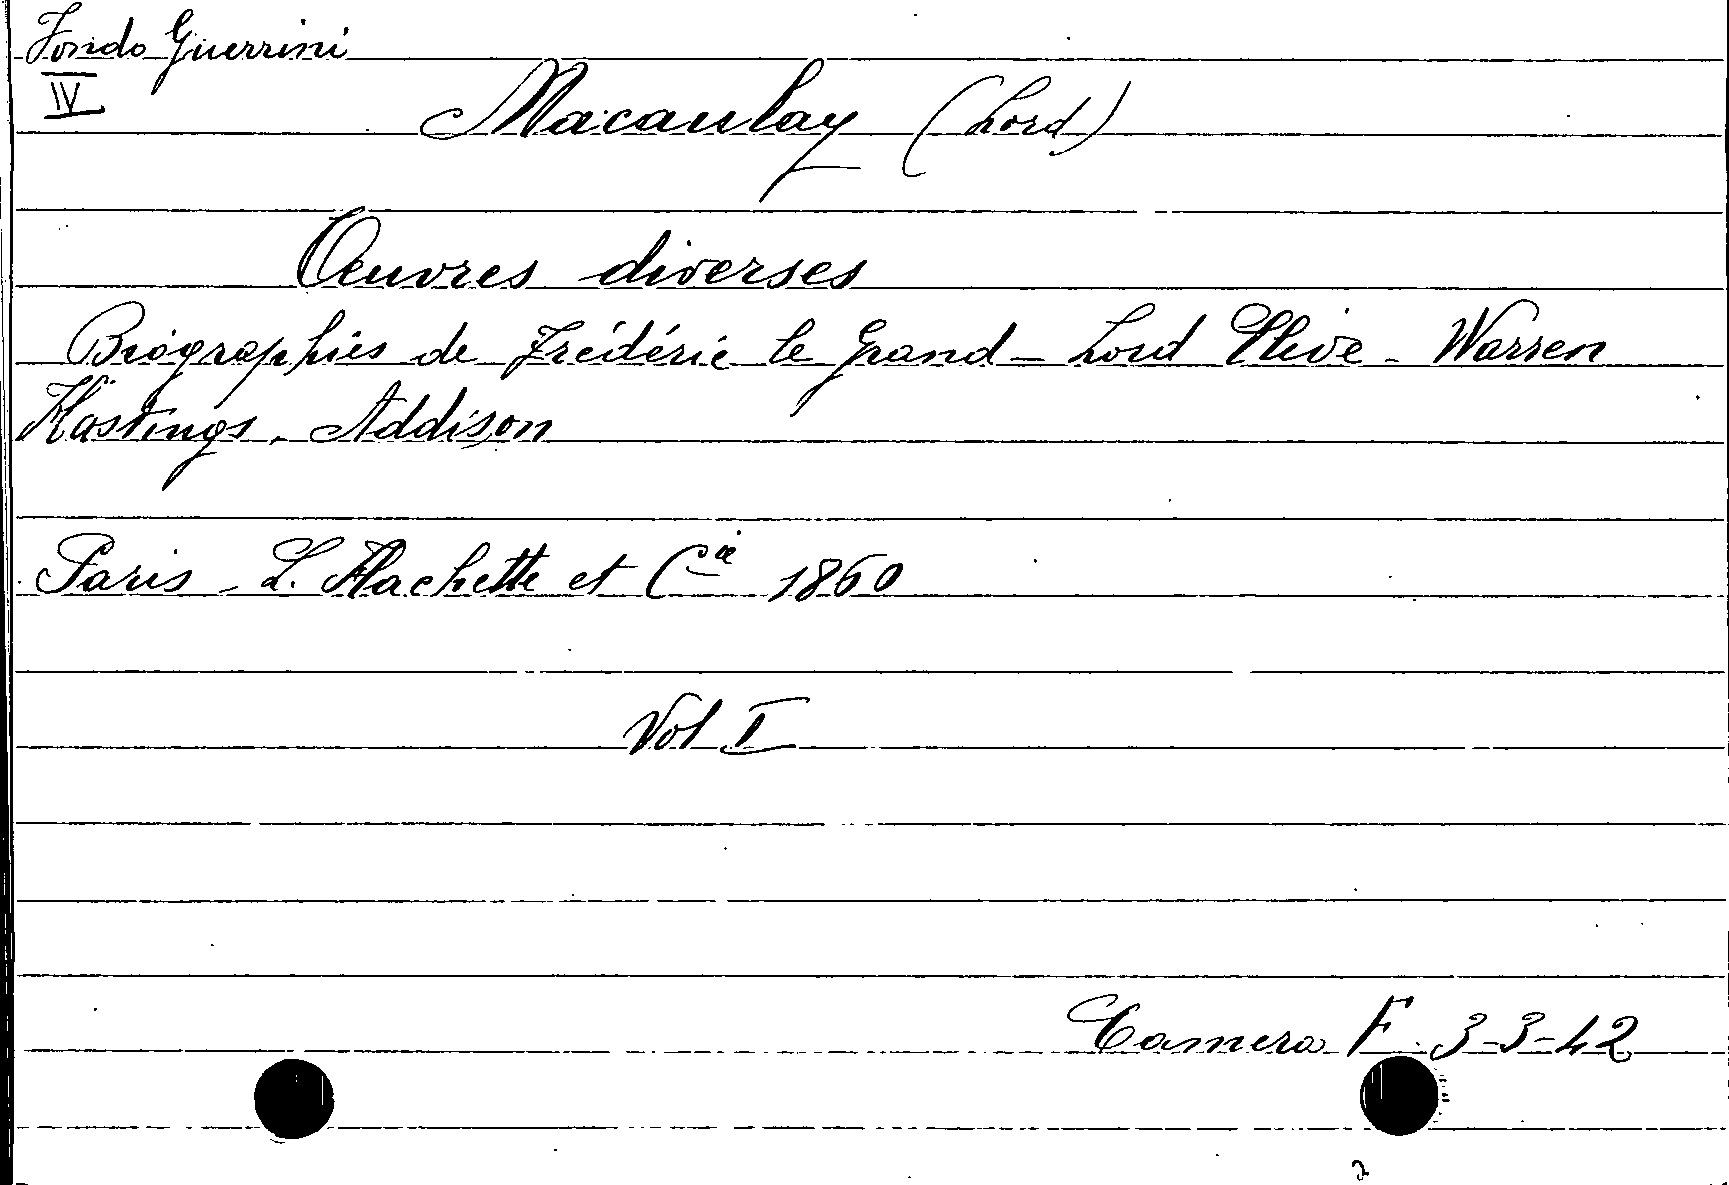 Fondo Guerrini
IV
Macaulay (Lord)
Oeuvres diverses
Biographies de Frédéric le Grand - Lord Clive - Warren
Hastings. Addison
Paris - L. Hachette et Cie 1860
Vol I
Camera F. 3-3-42
2